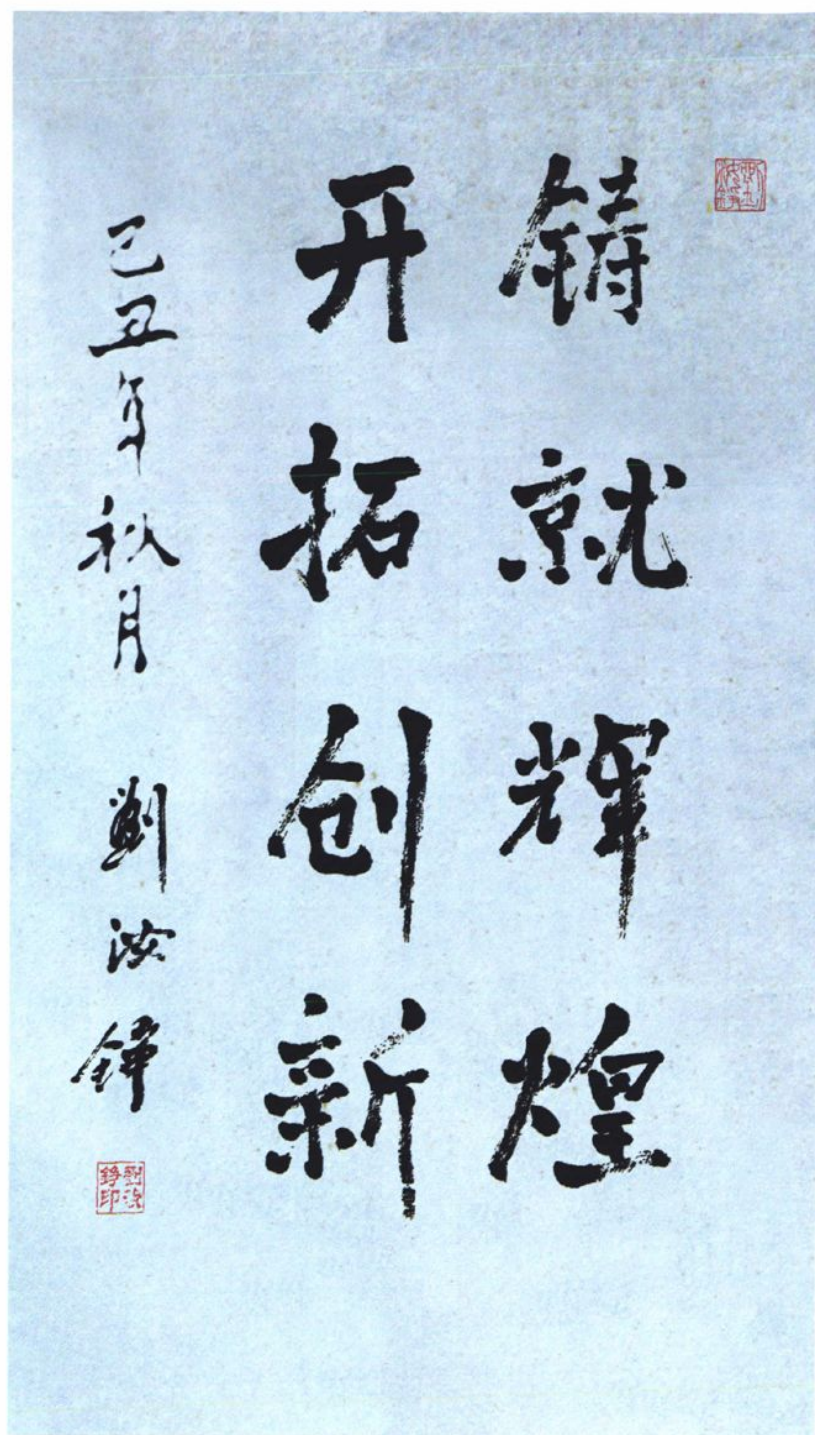 铸就辉煌
开拓创新
己丑年秋月 劉汝铮
劉汝
铮印